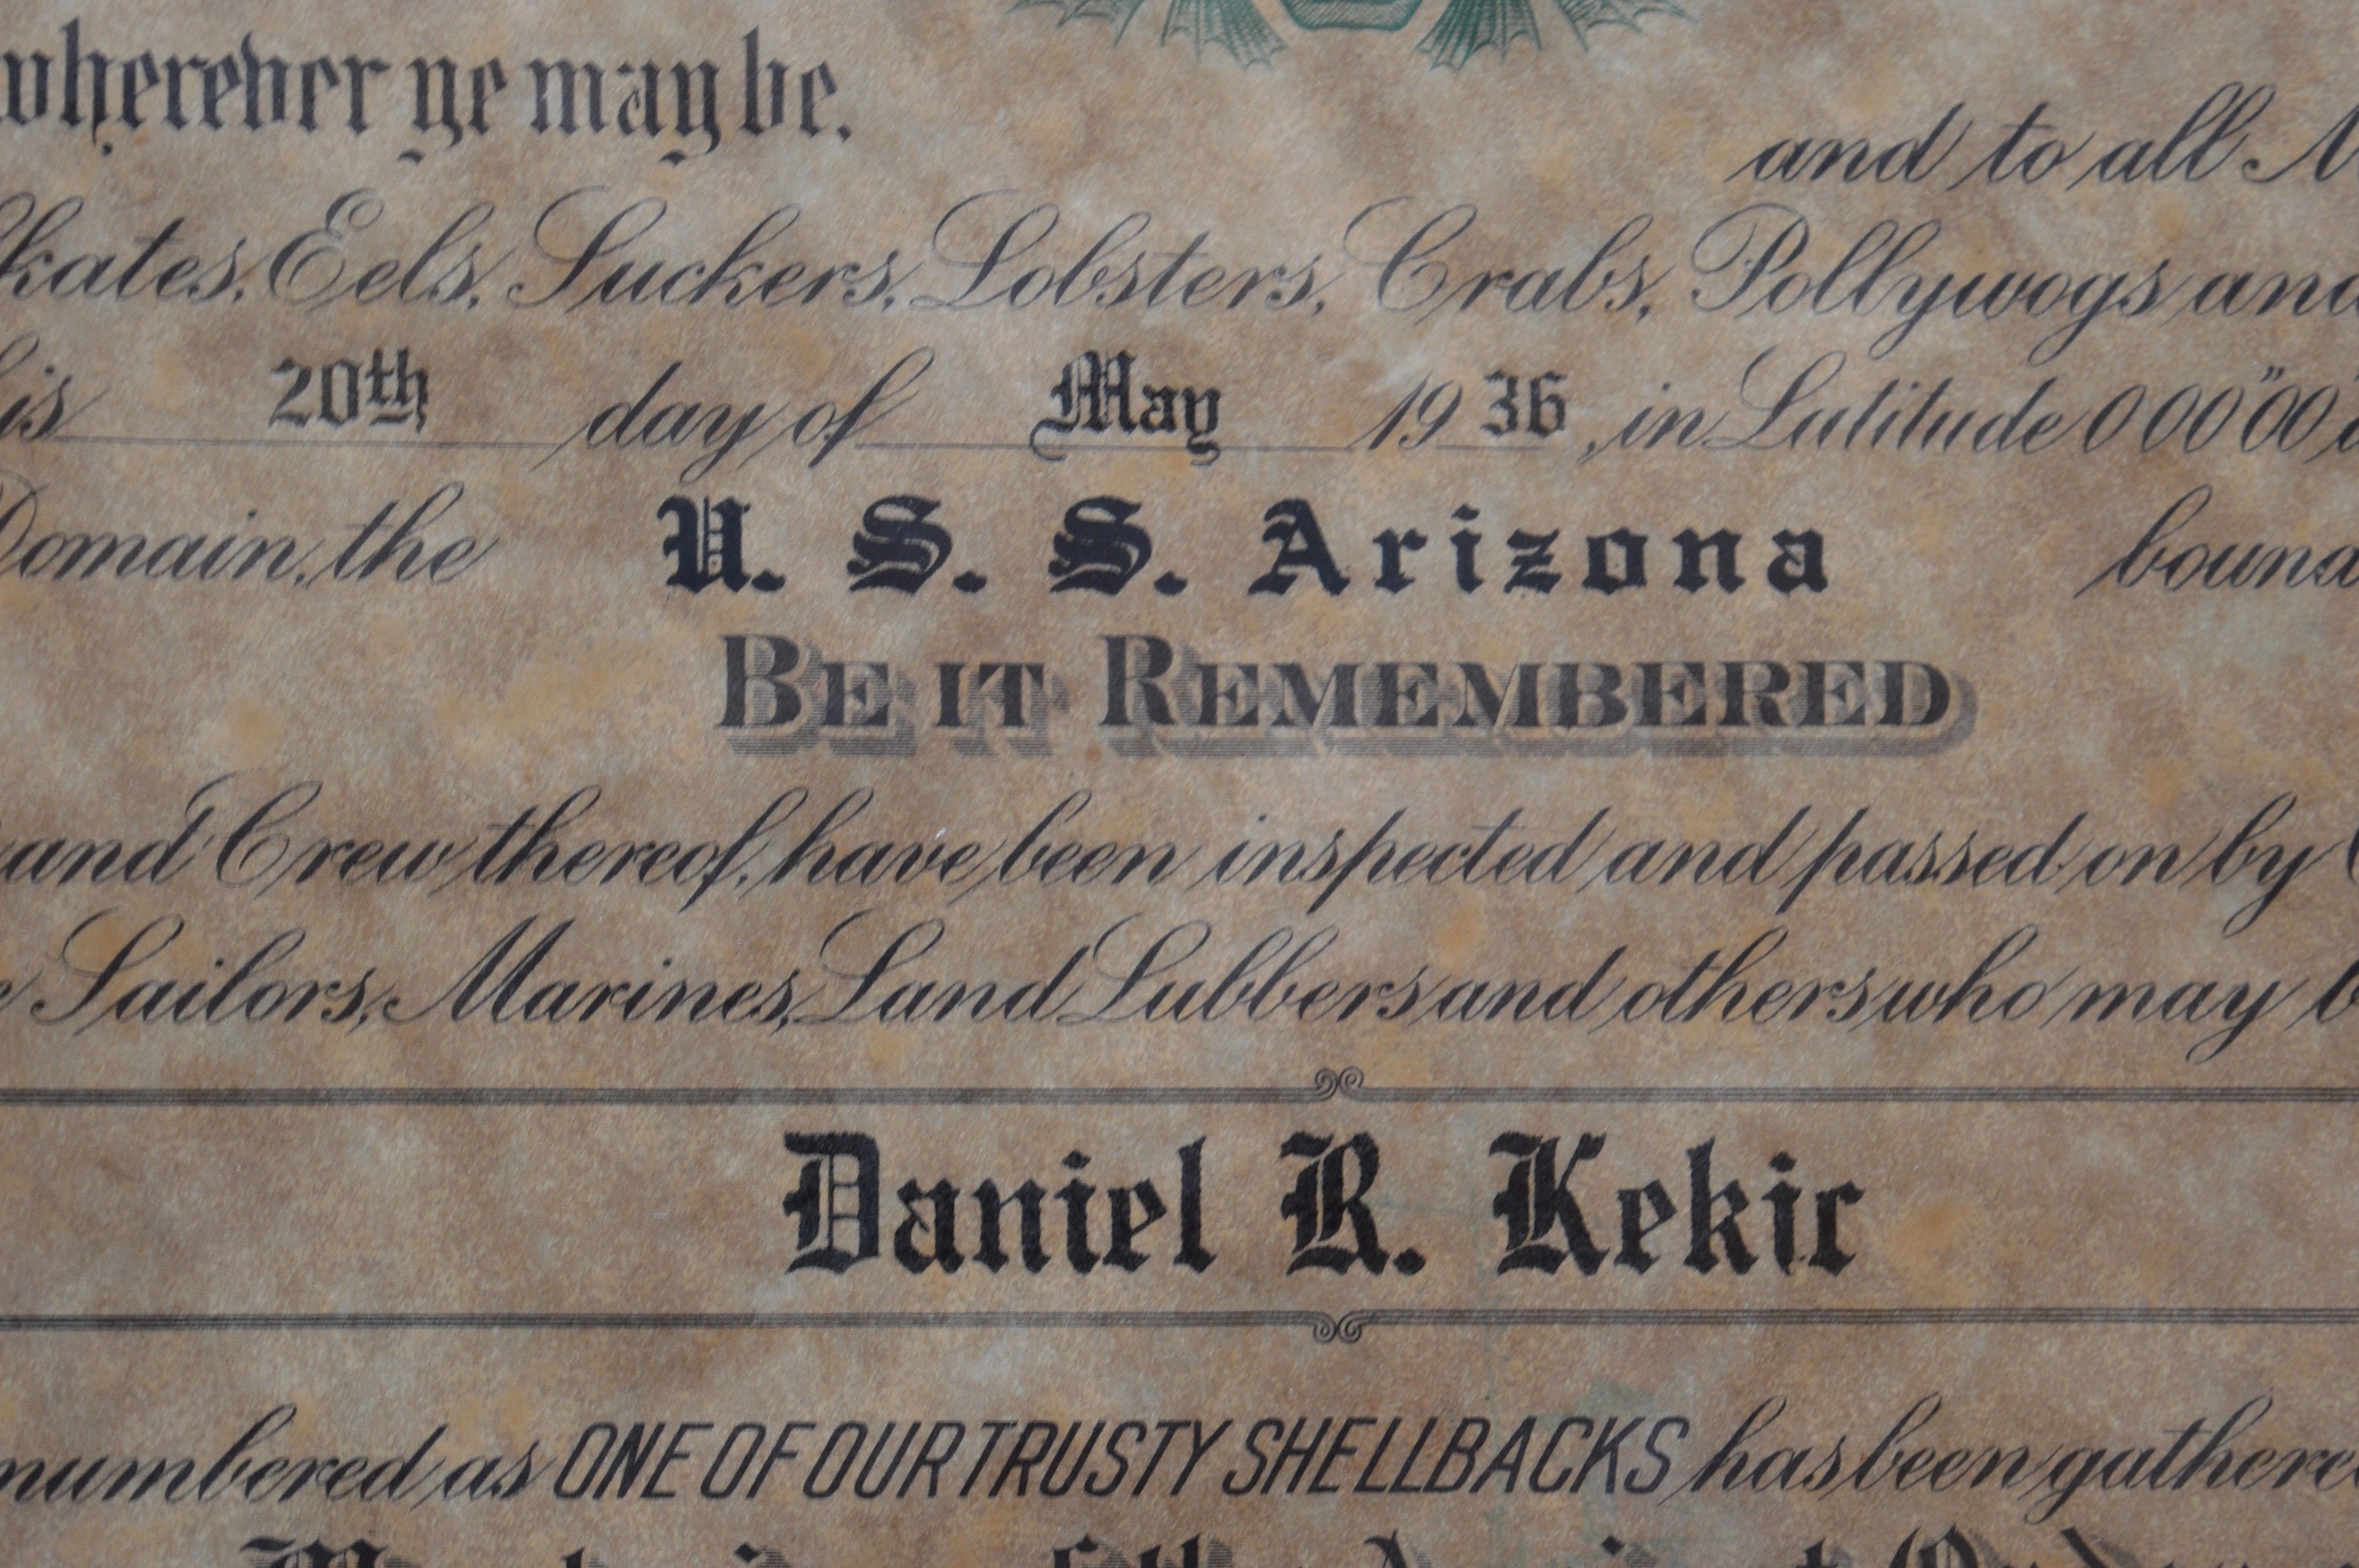 wherever ye may be.
and to all
Skates, Eels, Suckers, Lobsters, Crabs, Pollywogs and
is 20th day of May 19 36, in Latitude 0 00"00
Domain, the U. S. S. Arizona bound
BE IT REMEMBERED
and Crew thereof, have been inspected and passed on by
Sailors, Marines, Land Lubbers and others who may b
Daniel R. Kekic
numbered as ONE OF OUR TRUSTY SHELLBACKS has been gathered